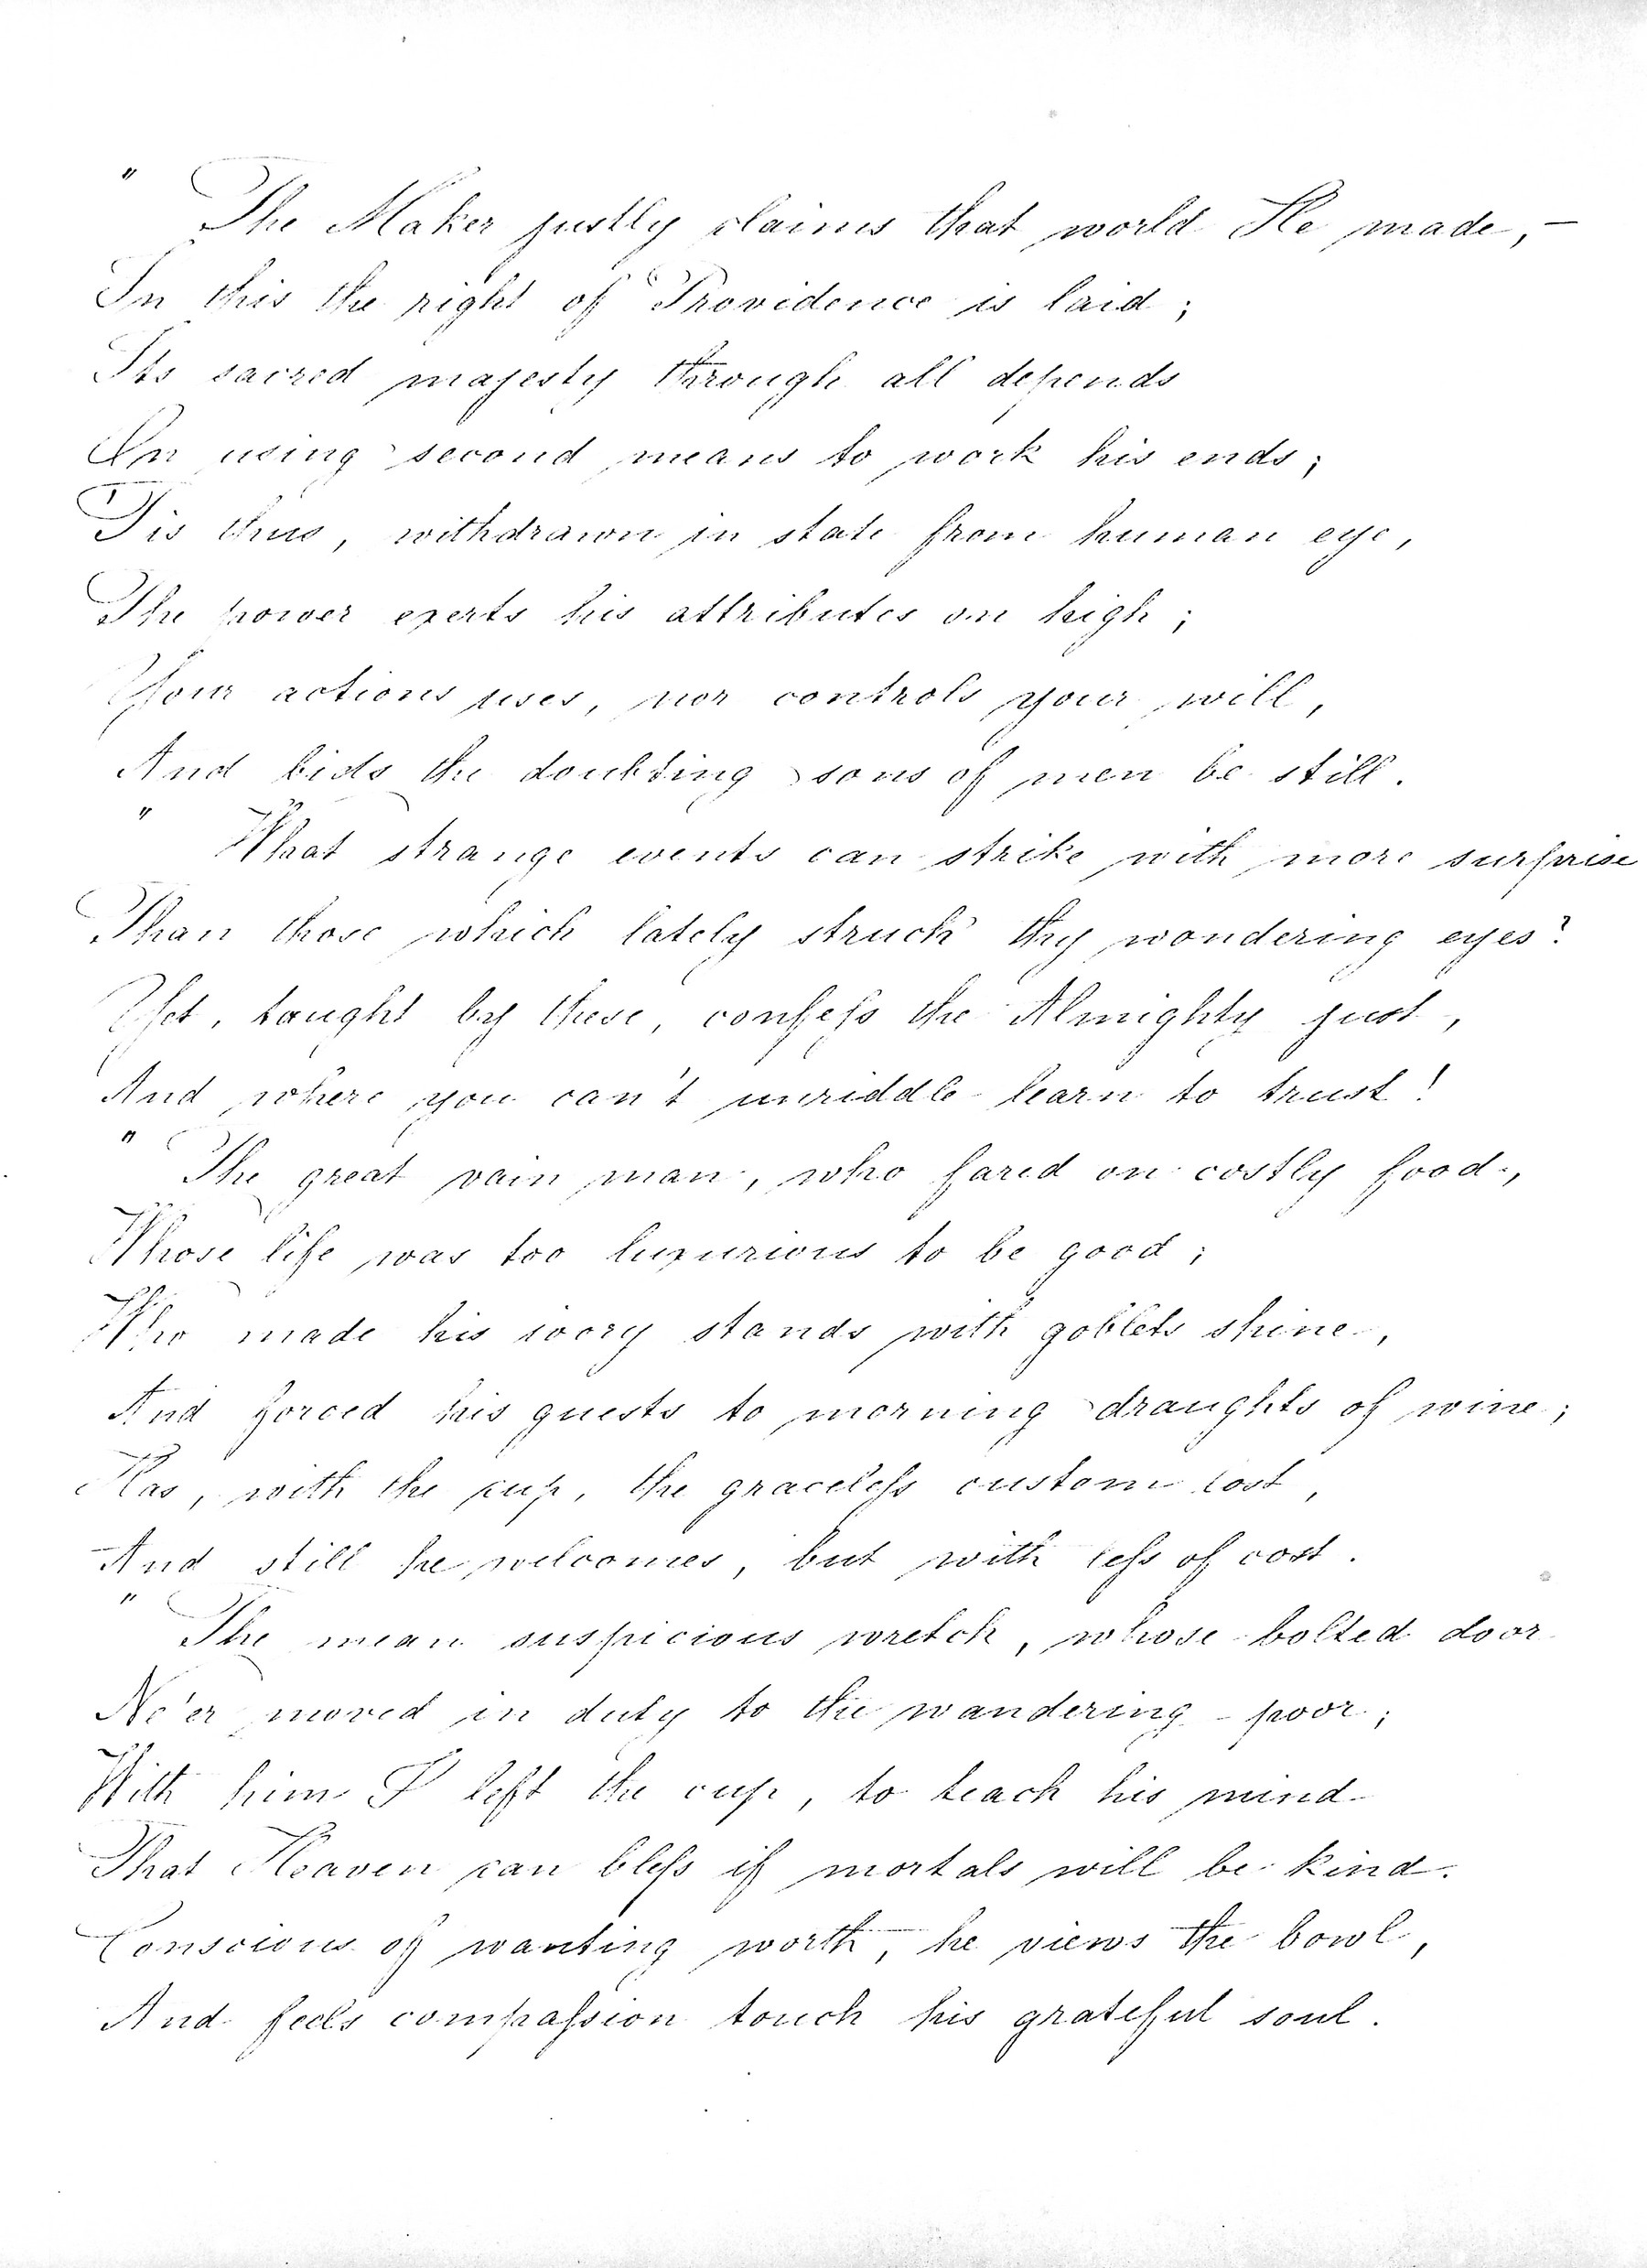 " The Maker justly claims that world He made, —
In this the right of Providence is laid;
Its sacred majesty through all depends
On using second means to work his ends;
Tis thus, withdrawn in state from human eye,
The power exerts his attributes on high;
Your actions uses, nor controls your will,
And bids the doubting sons of men be still.
" What strange events can strike with more surprise
Than those which lately struck thy wondering eyes?
Yet, taught by these, confeſs the Almighty just,
And where you can't unriddle learn to trust!
" The great vain man, who fared on costly food,
Whose life was too luxurious to be good;
Who made his ivory stands with goblets shine,
And forced his guests to morning draughts of wine;
Has, with the cup, the graceleſs custom lost,
And still he welcomes, but with leſs of cost.
" The mean suspicious wretch, whose bolted door
Ne'er moved in duty to the wandering poor;
With him I left the cup, to teach his mind
That Heaven can bleſs if mortals will be kind.
Conscious of wanting worth, he views the bowl,
And feels compaſsion touch his grateful soul.